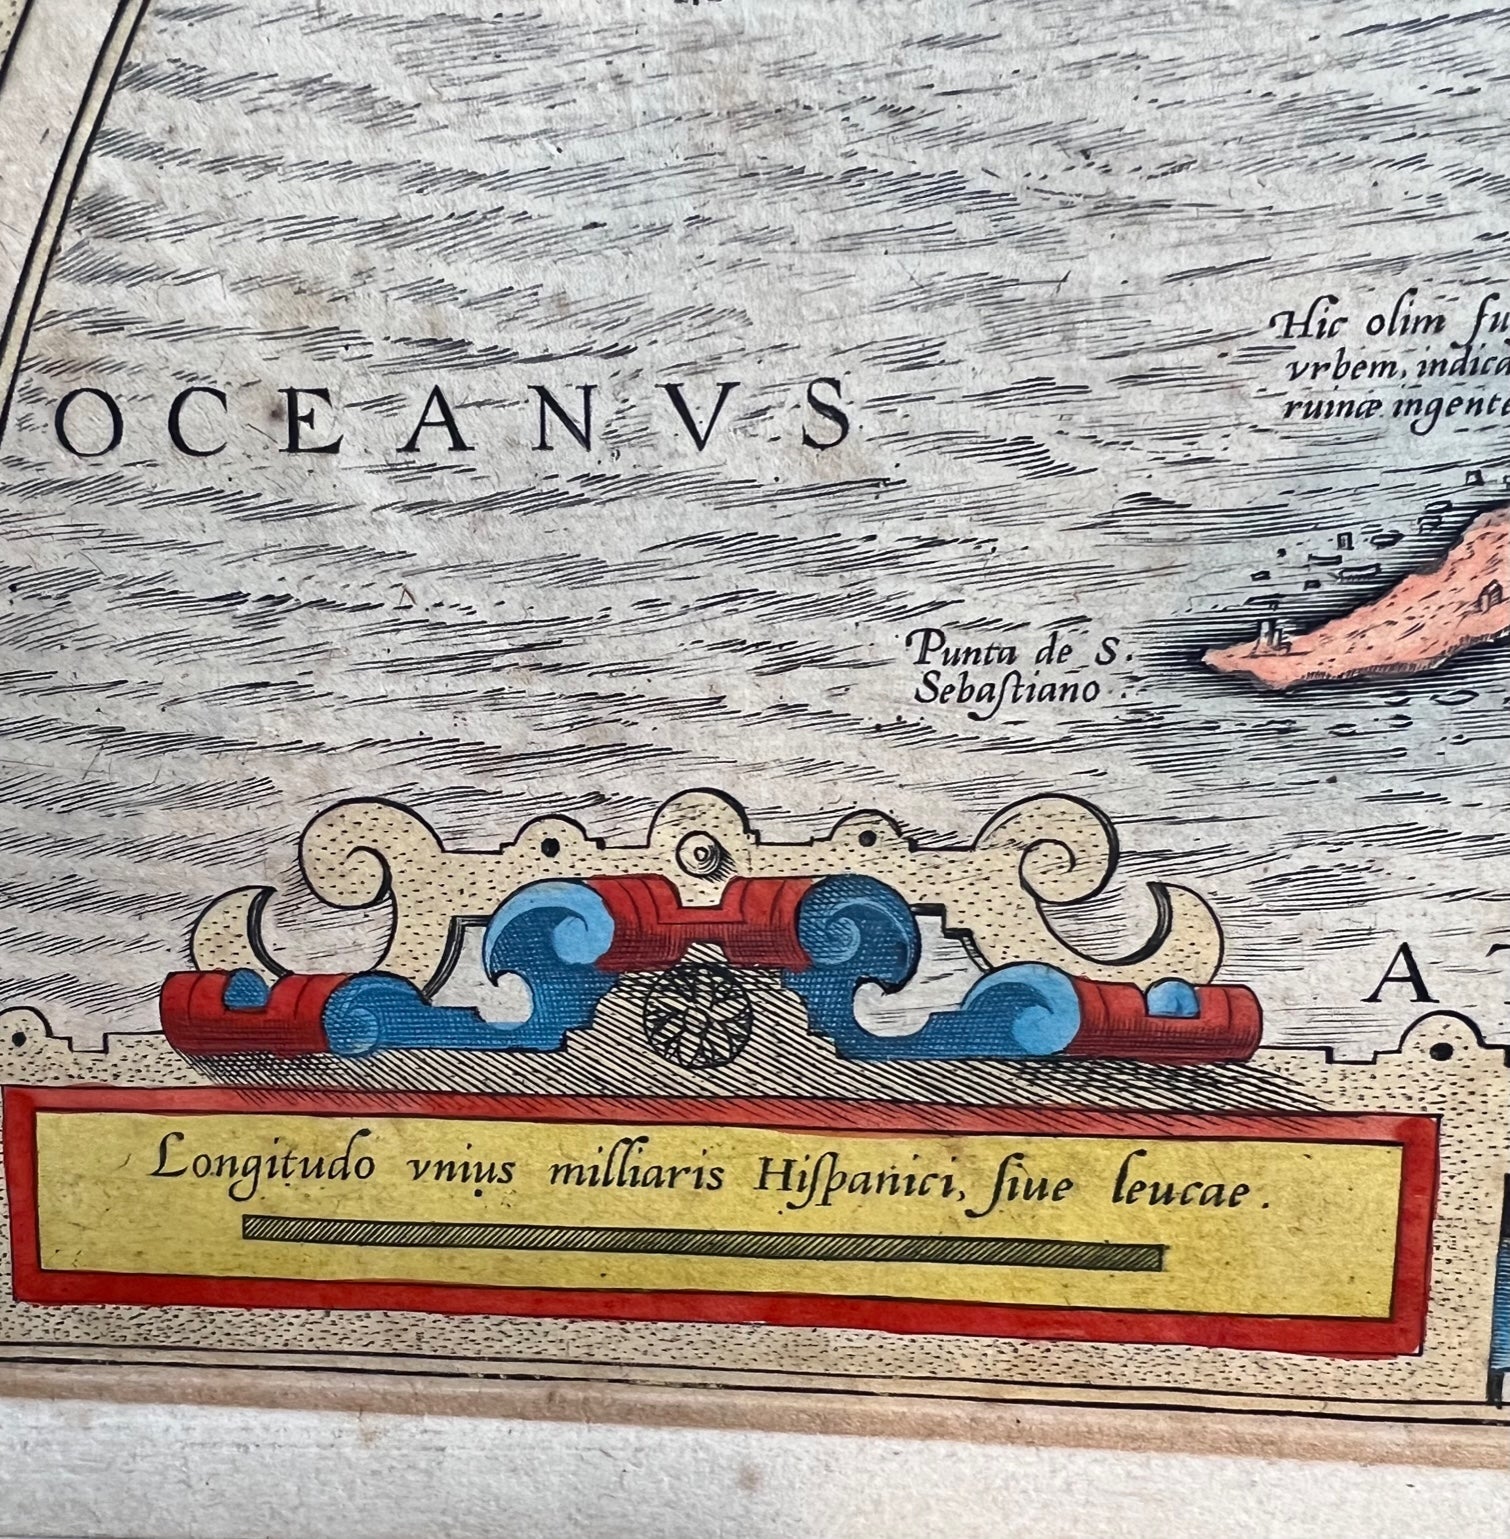 Hic olim
vrbem, indica
ruinæ ingente
OCEANVS
Punta de S.
Sebaſtiano
A
Longitudo vnius milliaris Hiſpanici, ſiue leucae.